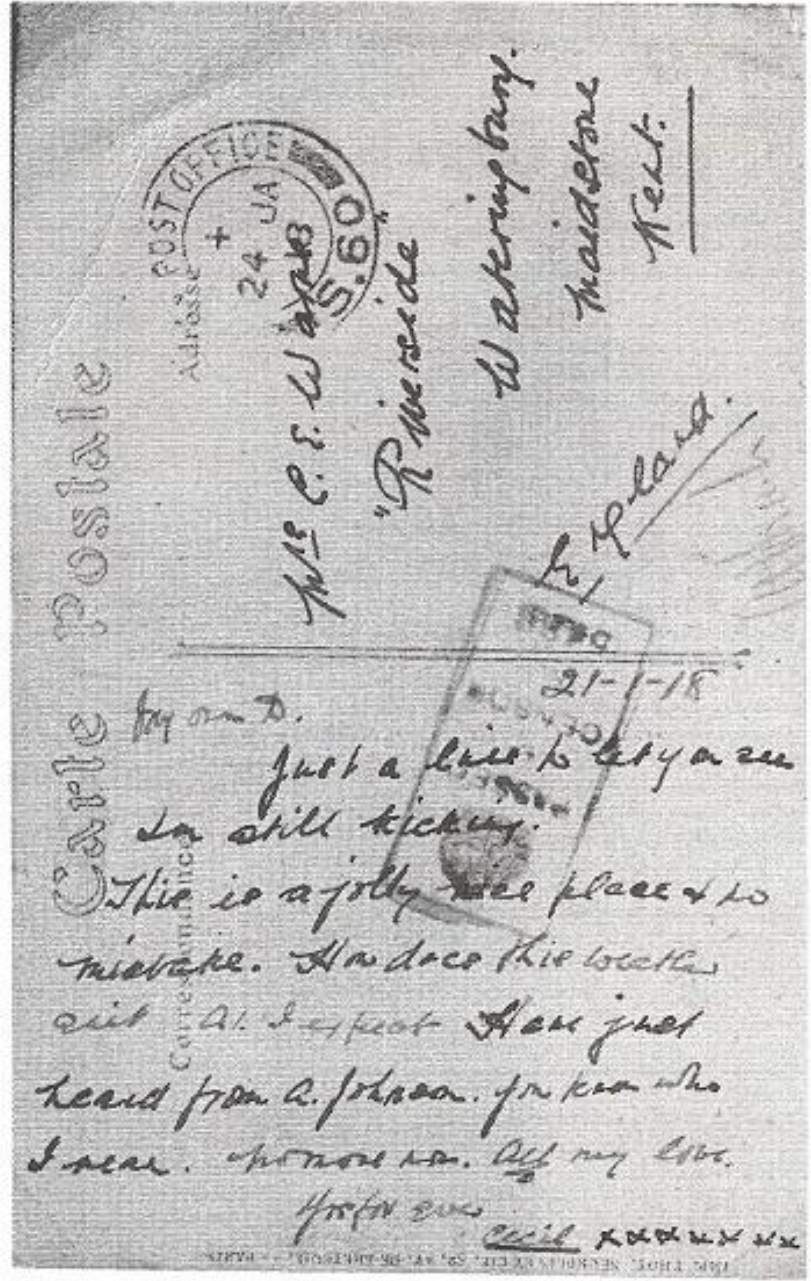 Carte Postale
Adresse
POST OFFICE
S.60
24 JA
Mrs C. E.
"Riverside"
Wateringbury.
Maidstone
Kent.
England.
Correspondance
21-1-18
My own D.
Just a line to let you see
Im still kicking.
This is a jolly nice place & no
mistake. How does this weather
suit I expect Have just
heard from A. Johnson. You know who
I mean. No more now. All my love.
Yrs for ever
Cecil xxxxxxx